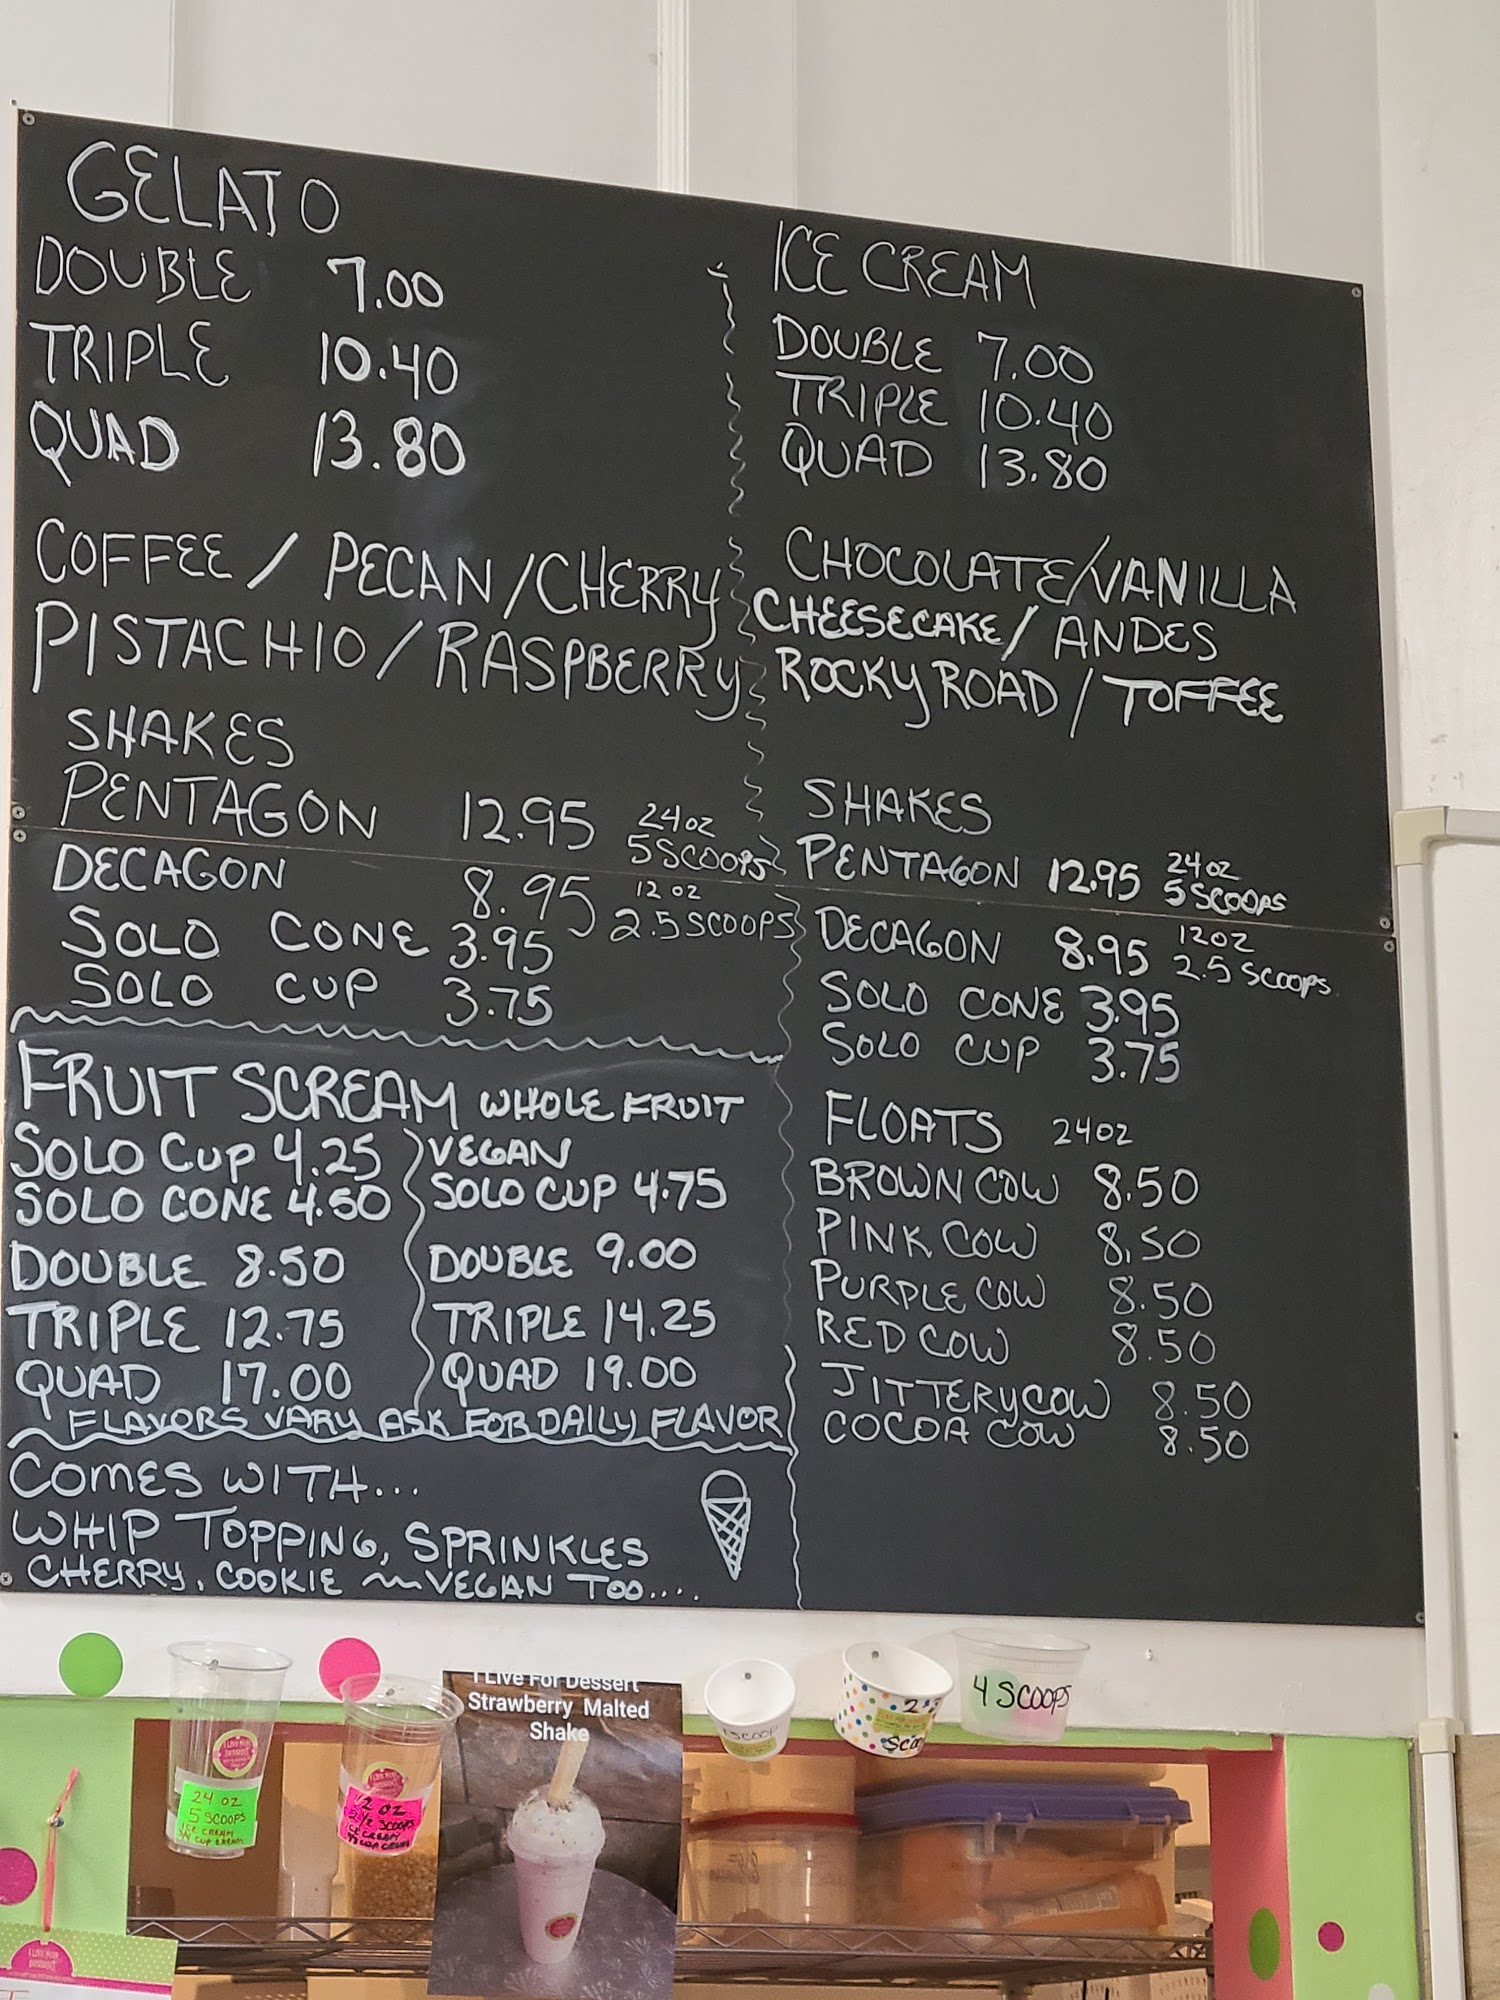 GELATO
DOUBLE 7.00
TRIPLE 10.40
QUAD 13.80
COFFEE / PECAN / CHERRY
PISTACHIO / RASPBERRY
SHAKES
PENTAGON 12.95 24 oz 5 SCOOPS
DECAGON 8.95 12 oz 2.5 SCOOPS
SOLO CONE 3.95
SOLO CUP 3.75
FRUIT SCREAM WHOLE FRUIT
SOLO CUP 4.25
SOLO CONE 4.50
DOUBLE 8.50
TRIPLE 12.75
QUAD 17.00
VEGAN
SOLO CUP 4.75
DOUBLE 9.00
TRIPLE 14.25
QUAD 19.00
FLAVORS VARY ASK FOR DAILY FLAVOR
COMES WITH...
WHIP TOPPING, SPRINKLES
CHERRY, COOKIE ~ VEGAN TOO....
ICE CREAM
DOUBLE 7.00
TRIPLE 10.40
QUAD 13.80
CHOCOLATE/VANILLA
CHEESECAKE/ ANDES
ROCKY ROAD / TOFFEE
SHAKES
PENTAGON 12.95 24 oz 5 SCOOPS
DECAGON 8.95 12 oz 2.5 SCOOPS
SOLO CONE 3.95
SOLO CUP 3.75
FLOATS 24 oz
BROWN COW 8.50
PINK COW 8.50
PURPLE COW 8.50
RED COW 8.50
JITTERY COW 8.50
COCOA COW 8.50
I LIVE FOR DESSERT
24 OZ
5 SCOOPS
ICE CREAM
12 OZ
2 1/2 SCOOPS
ICE CREAM
I Live For Dessert
Strawberry Malted
Shake
1 SCOOP
4 SCOOPS